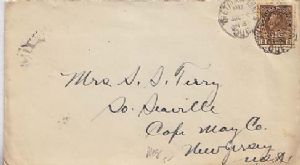 Mrs S. I. Terry
So. Seaville
Cape May Co.
New Jersey
U.S.A